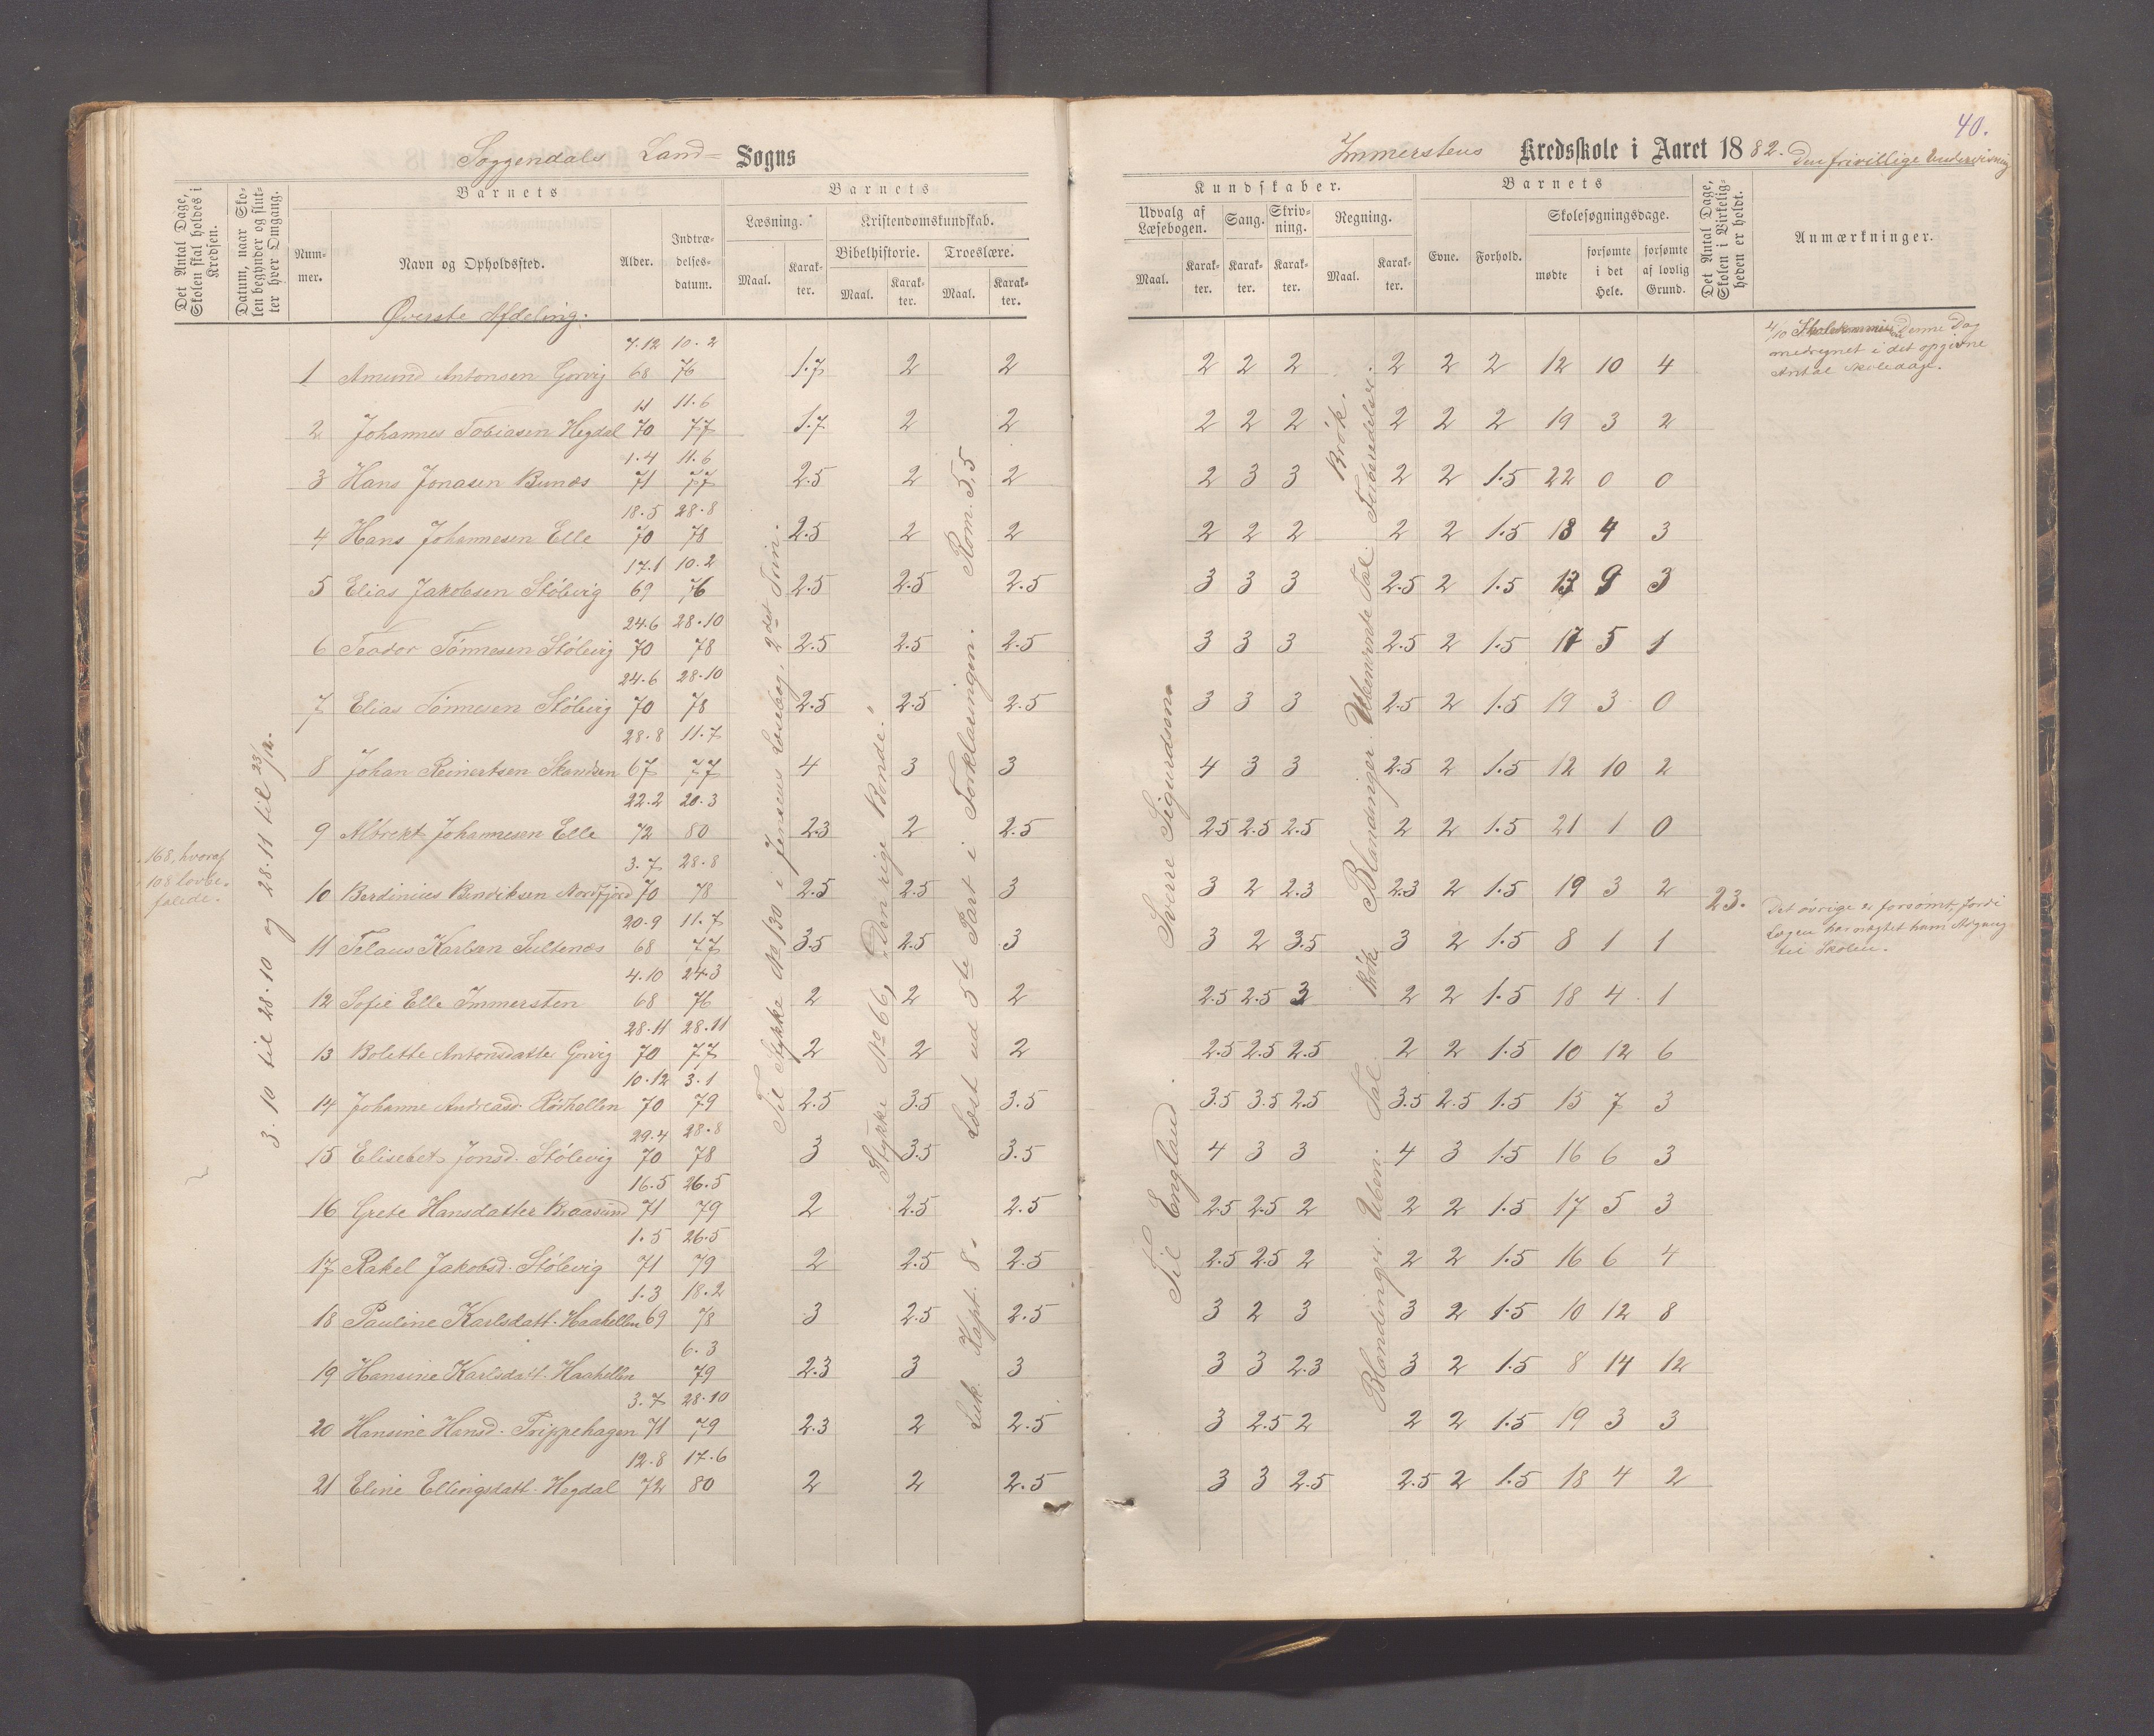 40.
Soggendals Land= Sogns
Immerstens Kredsskole i Aaret 1882. Den frivillige Undervisning
Det Antal Dage, Skolen skal holdes i Kredsen.
Datum, naar Skolen begynder og slutter hver Omgang.
Barnets
Nummer.
Navn og Opholdssted.
Alder.
Indtrædelsesdatum.
Barnets
Læsning.
Maal.
Karakter.
Kristendomskundskab.
Bibelhistorie.
Maal.
Karakter.
Troeslære.
Maal.
Karakter.
Kundskaber.
Udvalg af Læsebogen.
Maal.
Karakter.
Sang.
Karakter.
Skrivning.
Karakter.
Regning.
Maal.
Karakter.
Barnets
Evne.
Forhold.
Skolesøgningsdage.
mødte
forsømte i det Hele.
forsømte af lovlig Grund.
Det Antal Dage, Skolen i Virkeligheden er holdt.
Anmærkninger.
Øverste Afdeling.
1 Amund Antonsen Gorvig 7.12 68 10.2 76 1.7 2 2 2 2 2 2 2 2 12 10 4
2 Johannes Tobiasen Hegdal 11 70 11.6 77 1.7 2 2 2 2 2 2 2 2 19 3 2
3 Hans Jonasen Bunæs 1.4 71 11.6 77 2.5 2 2 2 3 3 2 2 1.5 22 0 0
4 Hans Johannesen Elle 18.5 70 28.8 78 2.5 2 2 2 2 2 2 2 1.5 18 4 3
5 Elias Jakobsen Stølevig 17.1 69 10.2 76 2.5 2.5 2.5 3 3 3 2.5 2 1.5 13 9 3
6 Teodor Tønnesen Stølevig 24.6 70 28.10 78 2.5 2.5 2.5 3 3 3 2.5 2 1.5 17 5 1
7 Elias Tønnesen Stølevig 24.6 70 28.10 78 2.5 2.5 2.5 3 3 3 2.5 2 1.5 19 3 0
8 Johan Reinertsen Skandsen 28.8 67 11.7 77 4 3 3 4 3 3 2.5 2 1.5 12 10 2
9 Albrekt Johannesen Elle 22.2 72 20.3 80 2.3 2 2.5 2.5 2.5 2.5 2 2 1.5 21 1 0
10 Berdinius Bendiksen Nordfjord 3.7 70 28.8 78 2.5 2.5 3 3 2 2.3 2.3 2 1.5 19 3 2
11 Telaus Karlsen Sultenæs 20.9 68 11.7 77 3.5 2.5 3 3 2 3.5 3 2 1.5 8 1 1
12 Sofie Elle Immersten 4.10 68 24.3 76 2 2 2 2.5 2.5 3 2 2 1.5 18 4 1
13 Bolette Antonsdatte Gorvig 28.11 70 28.11 77 2 2 2 2.5 2.5 2.5 2 2 1.5 10 12 6
14 Johanne Andreasd. Rødhellen 10.12 70 3.1 79 2.5 3.5 3.5 3.5 3.5 2.5 3.5 2.5 1.5 15 7 3
15 Elisebet Jonsd. Stølevig 29.4 70 28.8 78 3 3.5 3.5 4 3 3 4 3 1.5 16 6 3
16 Grete Hansdatter Braasund 16.5 71 26.5 79 2 2.5 2.5 2.5 2.5 2 2 2 1.5 17 5 3
17 Rakel Jakobsd. Stølevig 1.5 71 26.5 79 2 2.5 2.5 2.5 2.5 2 2 2 1.5 16 6 4
18 Pauline Karlsdatt. Haahellen 1.3 69 18.2 78 3 2.5 2.5 3 2 3 3 2 1.5 10 12 8
19 Hansine Karlsdatt. Haahellen 6.3 79 2.3 3 3 3 3 2.3 3 2 1.5 8 14 12
20 Hansine Hansd. Trippehagen 3.7 71 28.10 79 2.3 2 2.5 3 2.5 2 2 2 1.5 19 3 3
21 Eline Ellingsdatt. Hegdal 12.8 72 17.6 80 2 2 2.5 3 3 2.5 2.5 2 1.5 18 4 2
168, hvoraf
108 lovbe-
falede.
3.10 til 28.10 og 28.11 til 23/12.
Til Stykke No 130 i Jensens Læsebog, 2det Trin.
Stykke No 66, "Den rige Bonde."
Luk. Kapt. 8. Læst ud 5te Part i Forklaringen. Rom. 5,5
Til England. Sverre Sigurdsøn
Blandinger. Uben. Tal. Brøk Blandinger. Ubenævnte Tal. Tidsberedelser. Brøk.
23.
4/10 Skolekommis Denne Dag
medregnet i det opgivne
Antal Skoledage.
Det øvrige er forsømt, fordi
Lægen har nægtet ham Adgang
til Skolen.